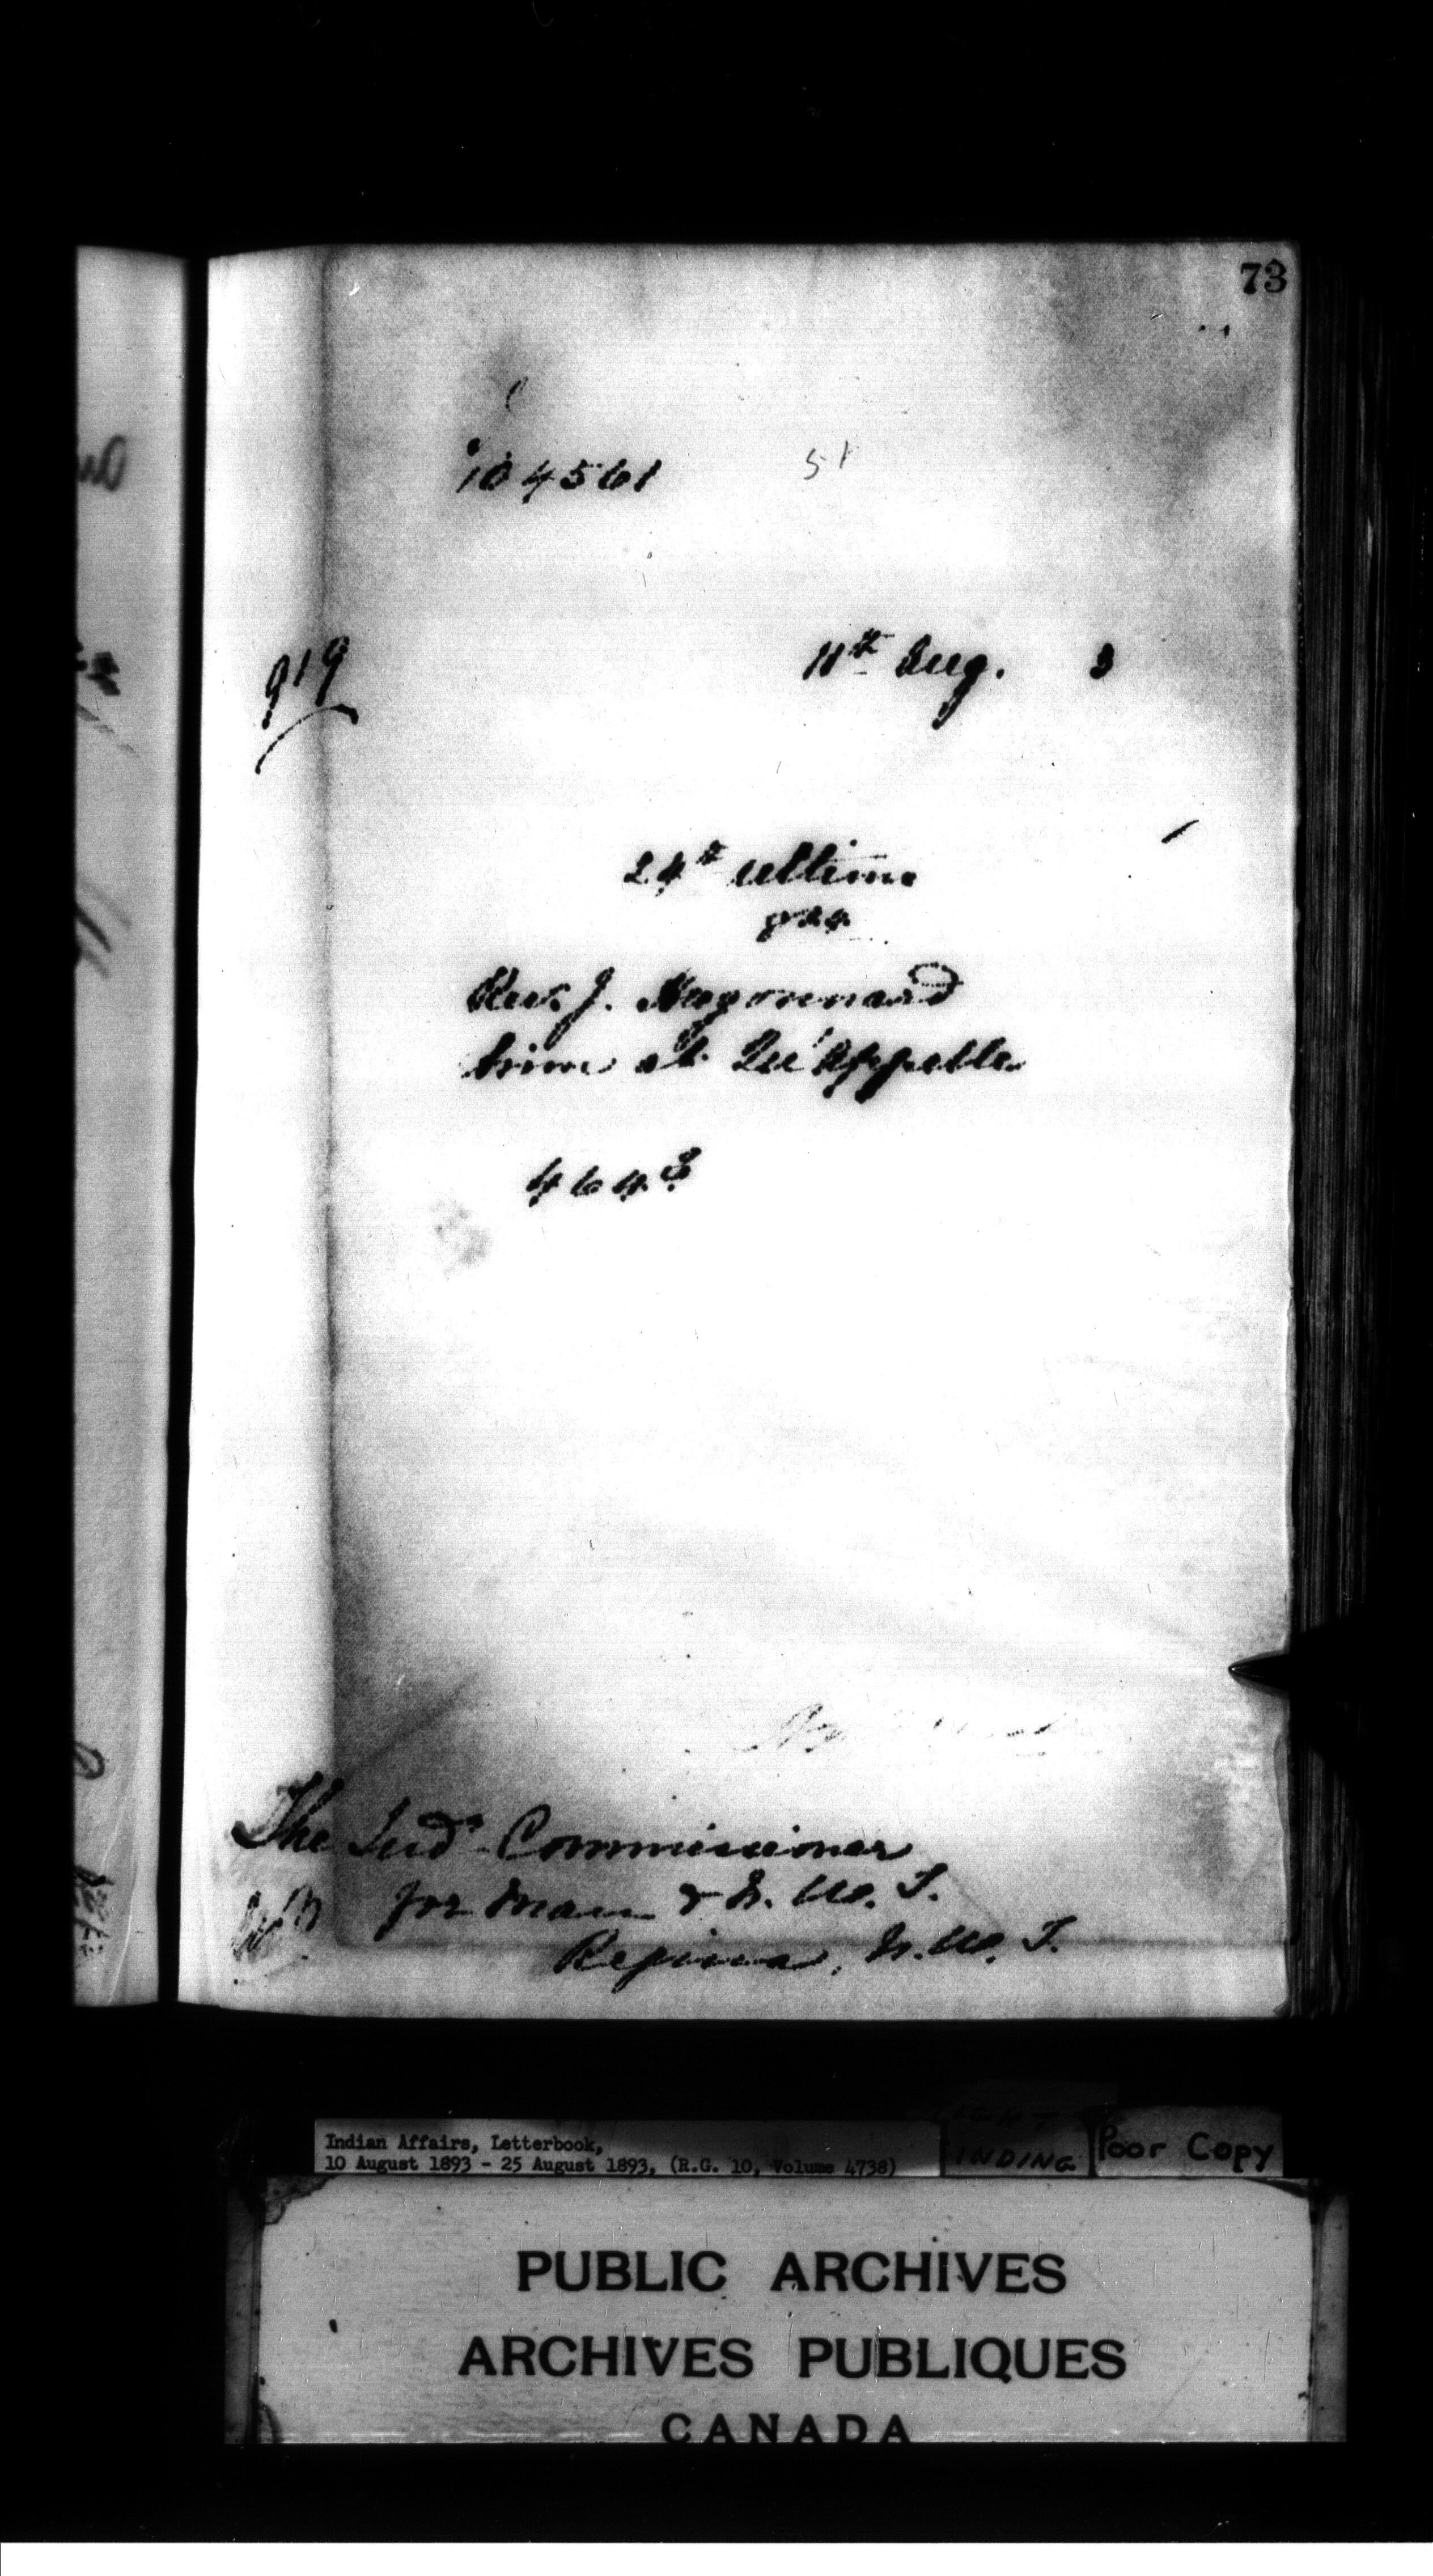 73
104561
51
919
11th Aug. 3
24th ultimo
Rev. J. Hugonnard
at Qu'Appelle
464
The Ind. Commissioner
for Man & N. W. T.
Regina, N. W. T.
Indian Affairs, Letterbook,
10 August 1893 - 25 August 1893, (R.G. 10, Volume 4738)
Poor Copy
PUBLIC ARCHIVES
ARCHIVES PUBLIQUES
CANADA